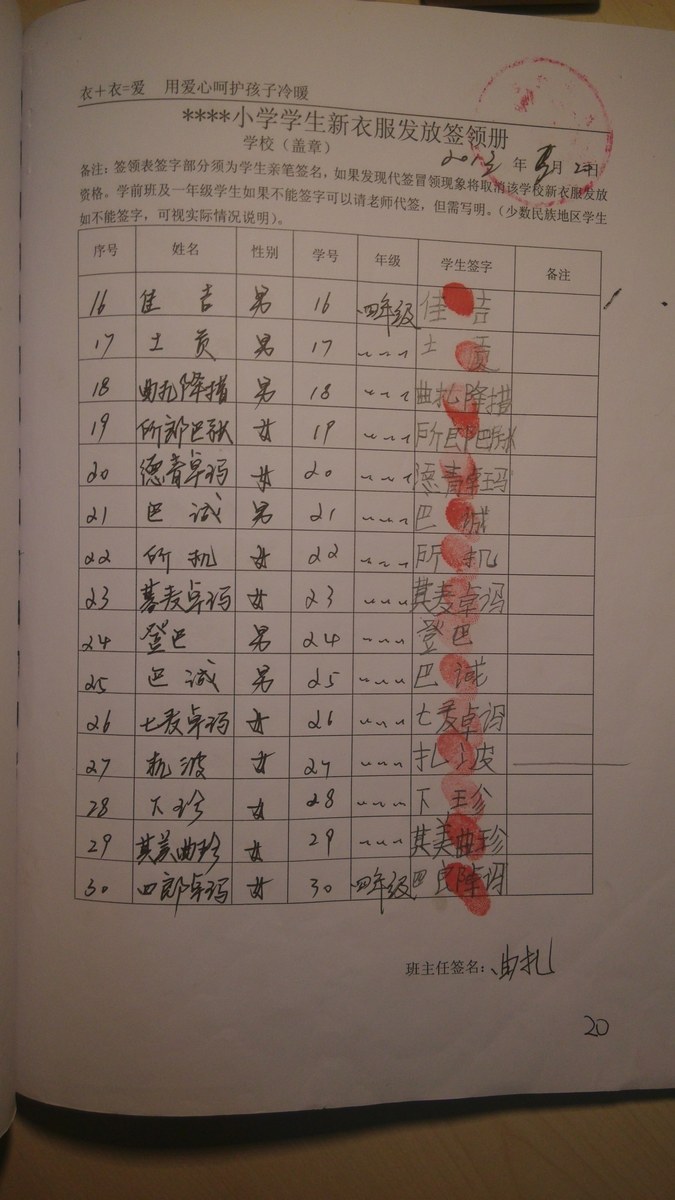 衣+衣=爱 用爱心呵护孩子冷暖
****小学学生新衣服发放签领册
学校（盖章） 年 月 日
备注：签领表签字部分须为学生亲笔签名，如果发现代签冒领现象将取消该学校新衣服发放
资格。学前班及一年级学生如果不能签字可以请老师代签，但需写明。（少数民族地区学生
如不能签字，可视实际情况说明）。
序号 姓名 性别 学号 年级 学生签字 备注
16 佳吉 男 16 四年级 佳吉
17 土贡 男 17 土贡
18 曲扎降措 男 18 曲扎降措
19 女 19
20 德青卓玛 女 20 德青卓玛
21 巴诚 男 21 巴城
22 所机 女 22 所机
23 女 23 其麦卓玛
24 登巴 男 24 登巴
25 巴诚 男 25 巴诚
26 七麦卓玛 女 26 七麦卓玛
27 女 27
28 下珍 女 28 下珍
29 其美曲珍 女 29 其美曲珍
30 四郎卓玛 女 30 四年级
班主任签名：曲扎
20